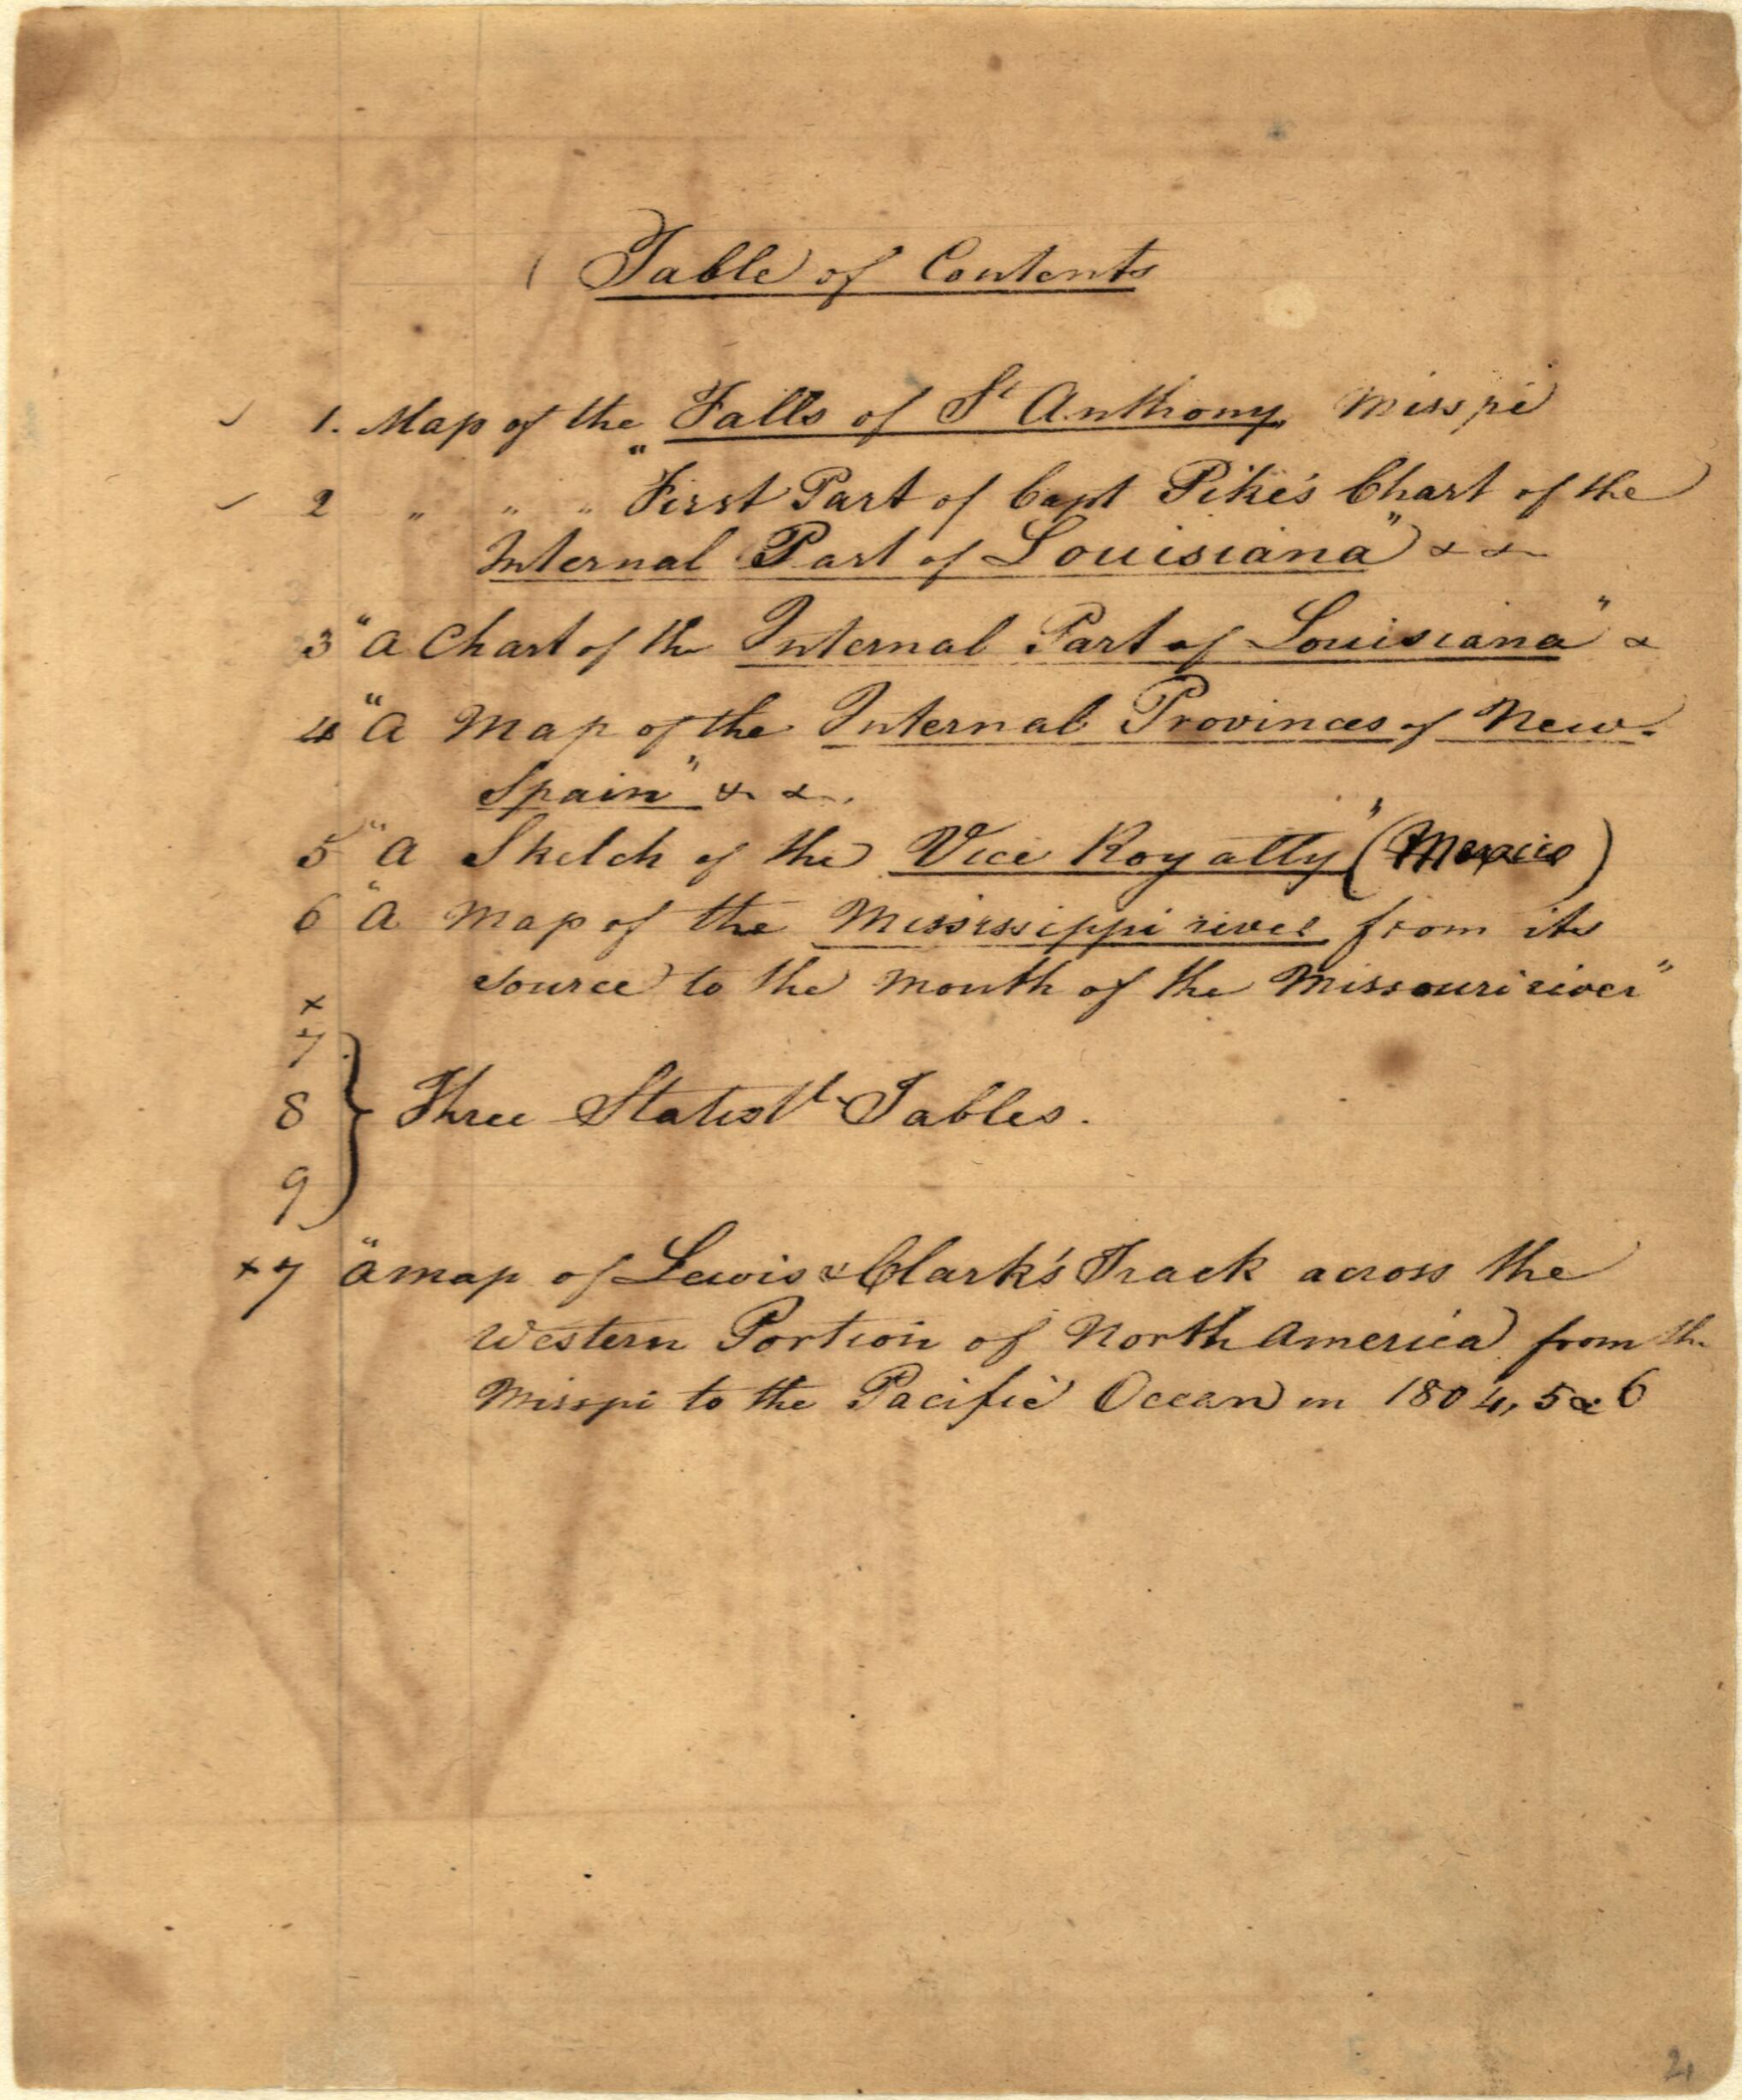 Table of Contents
✓ 1. Map of the Falls of St Anthony Misspi
✓ 2 " " " "First Part of Capt Pike's Chart of the
Internal Part of Louisiana" & &
3 "A Chart of the Internal Part of Louisiana" &
4 "A Map of the Internal Provinces of New
Spain" & &.
5 "A Sketch of the Vice Royalty" (Mexico)
6 "A Map of the Mississippi river from its
source to the mouth of the Missouri river"
x
7
8 } Three Statistl Tables.
9
x 7 "A map of Lewis & Clark's Track across the
Western Portion of North America from the
Misspi to the Pacific Ocean in 1804, 5 & 6
2,